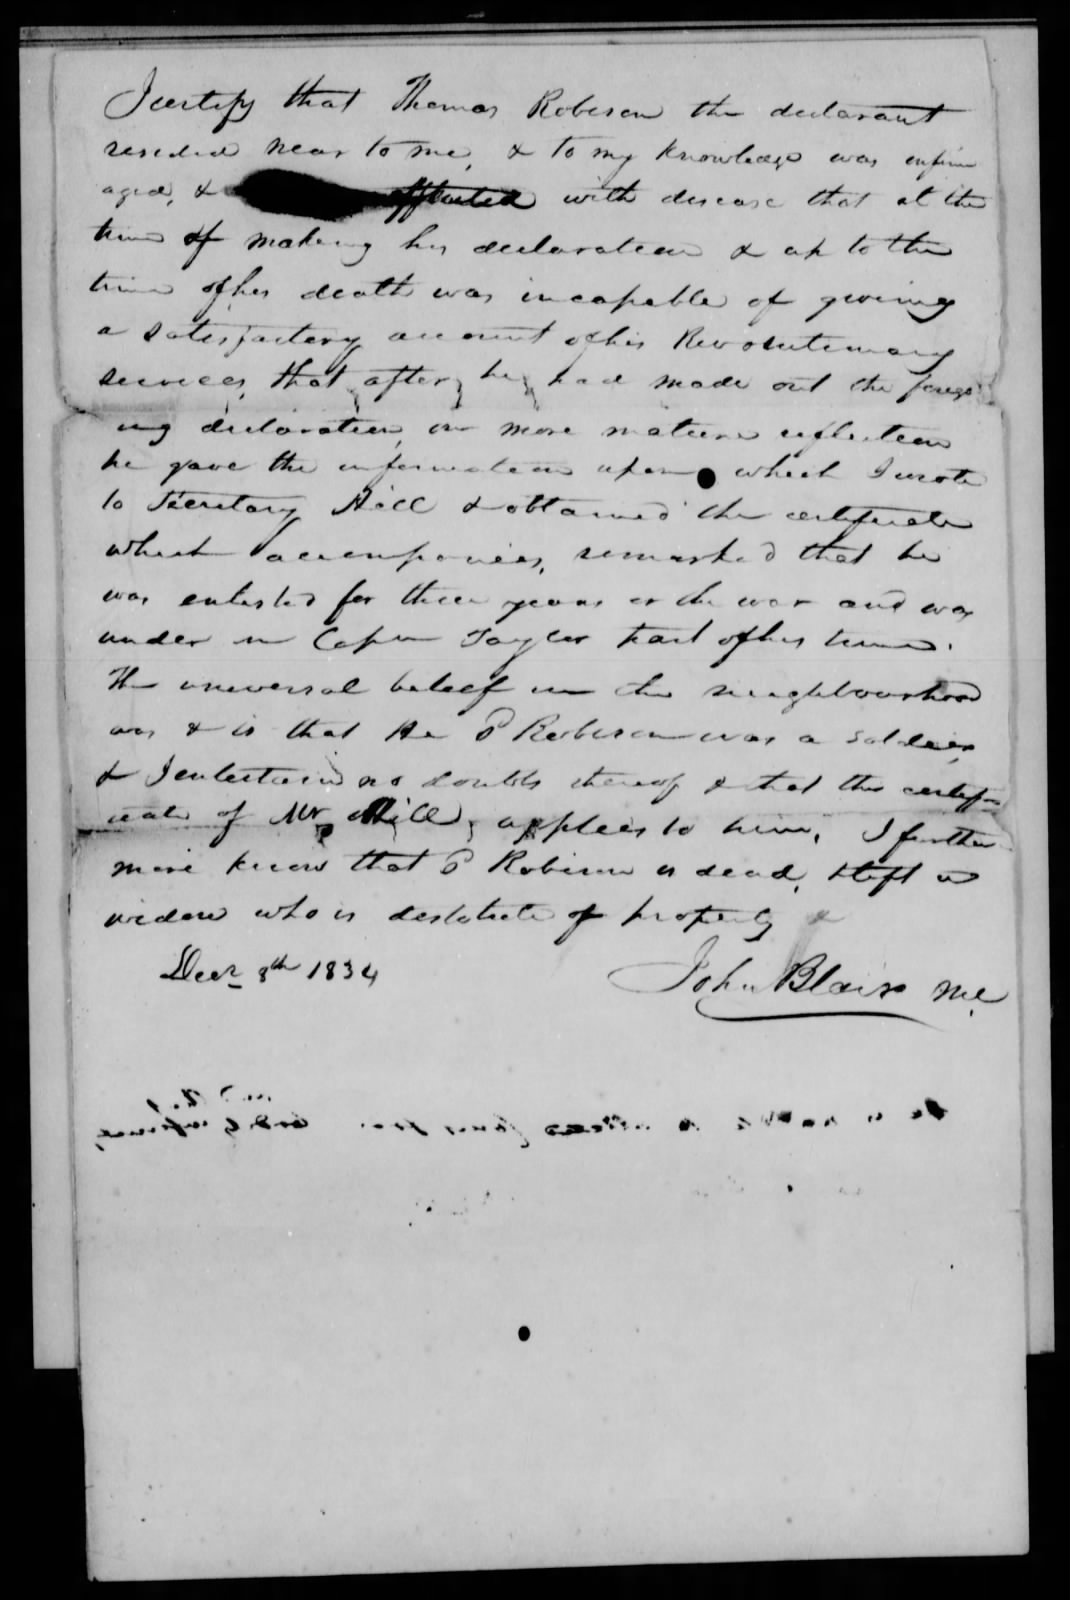 I certify that Thomas Robison the declarant
resided near to me, & to my knowledge was infirm
aged, & afflicted with disease that at the
time of making his declaration & up to the
time of his death was incapable of giving
a satisfactory account of his Revolutionary
services, that after he had made out the forego
ing declaration, on more mature reflection
he gave the information upon which I wrote
to Secretary Hill & obtained the certificate
which accompanies, remarked that he
was enlisted for three years or the war and was
under a Capn Taylor part of his time.
The universal belief in the neighbourhood
was & is that he Robison was a soldier,
& I entertain no doubts thereof & that the certifi
cate of Mr Hill, applies to him, I further
more know that Robison is dead, & left a
widow who is destitute of property &
Decr 8th 1834
John Blair